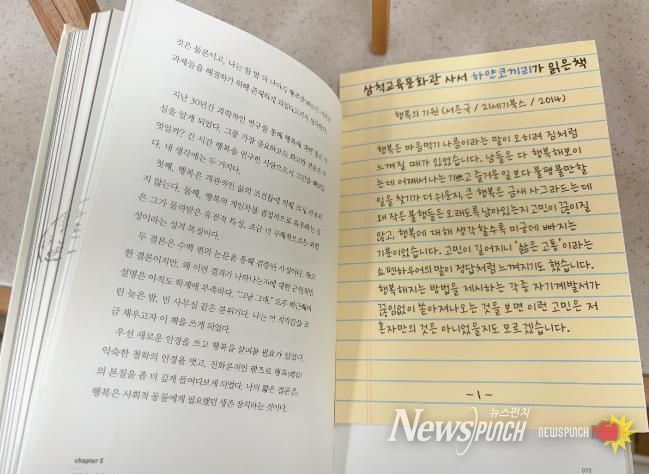 지난 30년간 과학적인 연구를 통해 행복에 대한 많은 사
실을 알게 되었다. 그중 가장 중요하고도 확고한 결론은 무
엇일까? 긴 시간 행복을 연구한 사람으로서 고민을 해보았
다. 내 생각에는 두 가지다.
첫째, 행복은 객관적인 삶의 조건들에 의해 크게 좌우되
지 않는다. 둘째, 행복의 개인차를 결정적으로 좌우하는 것
은 그가 물려받은 유전적 특성, 조금 더 구체적으로는 외향
성이라는 성격 특질이다.
두 결론은 수백 편의 논문을 통해 검증된 사실이다. 확고
한 결론이지만, 왜 이런 결과가 나타나는지에 대한 근원적인
설명은 아직도 학계에 부족하다. "그냥 그래."
린 늦은 밤, 빈 사무실 같은 분위기다. 나는 이
급 채우고자 이 책을 쓰게 되었다.
우선 새로운 안경을 쓰고 행복을 살펴볼 필요가 있었다.
익숙한 철학의 안경을 벗고, 진화론적인 렌즈로 행복
의 본질을 좀 더 깊게 들여다보게 되었다. 나의 짧은 결론은,
행복은 사회적 동물에게 필요했던 생존 장치라는 것이다.
chapter 5
삼척교육문화관 사서 하얀코끼리가 읽은책
행복의 기원 (서은국 / 21세기북스 / 2014)
행복은 마음먹기 나름이라는 말이 오히려 짐처럼
느껴질 때가 있었습니다. 남들은 다 행복해보이
는데 어째서 나는 기쁘고 즐거운 일보다 불평 불만할
일을 찾기가 더 쉬운지, 큰 행복은 금새 사그라드는데
왜 작은 불행들은 오래도록 남아있는지 고민이 끊이질
않고, 행복에 대해 생각할수록 미궁에 빠지는
기분이었습니다. 고민이 길어지니 '삶은 고통'이라는
쇼펜하우어의 말이 정답처럼 느껴지기도 했습니다.
행복해지는 방법을 제시하는 각종 자기계발서가
끊임없이 쏟아져나오는 것을 보면 이런 고민은 저
혼자만의 것은 아니었을지도 모르겠습니다.
-1-
뉴스펀치
NewsPUNCH
NEWSPUNCH
093